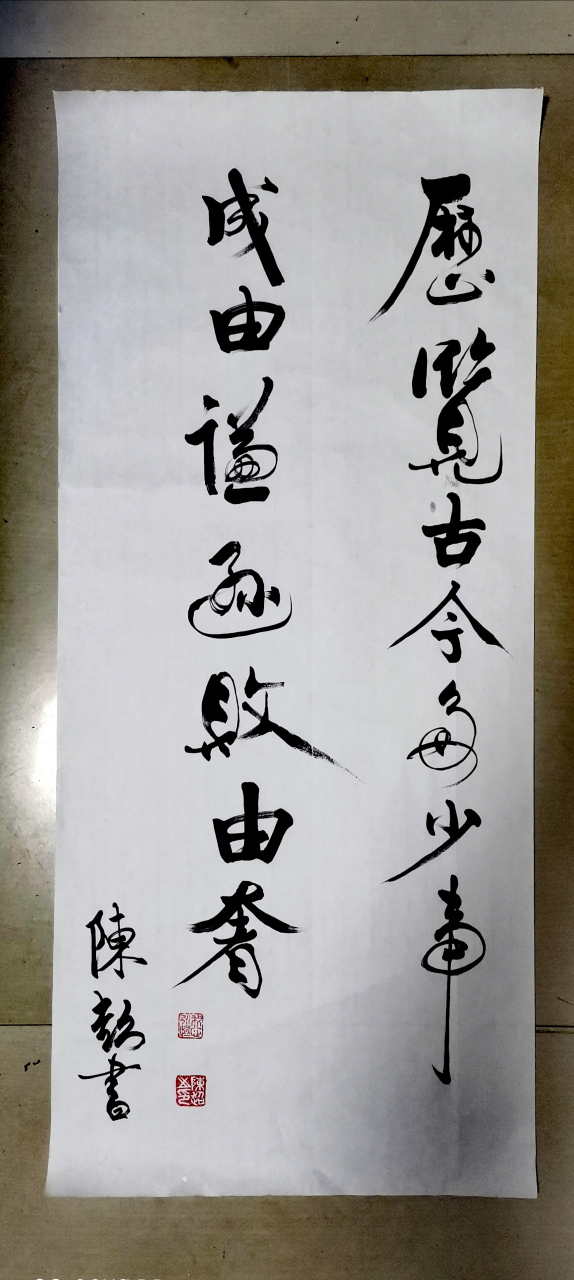 歷覽古今多少事
成由謙遜敗由奢
陳韜書